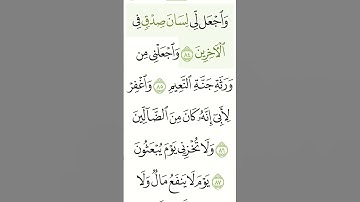 وَٱجْعَل لِّى لِسَانَ صِدْقٍ فِى
ٱلْءَاخِرِينَ ٨٤ وَٱجْعَلْنِى مِن
وَرَثَةِ جَنَّةِ ٱلنَّعِيمِ ٨٥ وَٱغْفِرْ
لِأَبِىٓ إِنَّهُۥ كَانَ مِنَ ٱلضَّآلِّينَ
٨٦ وَلَا تُخْزِنِى يَوْمَ يُبْعَثُونَ
٨٧ يَوْمَ لَا يَنفَعُ مَالٌ وَلَا